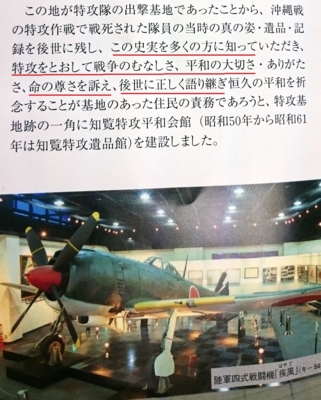 この地が特攻隊の出撃基地であったことから、沖縄戦
の特攻作戦で戦死された隊員の当時の真の姿・遺品・記
録を後世に残し、この史実を多くの方に知っていただき、
特攻をとおして戦争のむなしさ、平和の大切さ・ありがた
さ、命の尊さを訴え、後世に正しく語り継ぎ恒久の平和を祈
念することが基地のあった住民の責務であろうと、特攻基
地跡の一角に知覧特攻平和会館(昭和50年から昭和61
年は知覧特攻遺品館)を建設しました。
はやて
陸軍四式戦闘機「疾風」(キー84